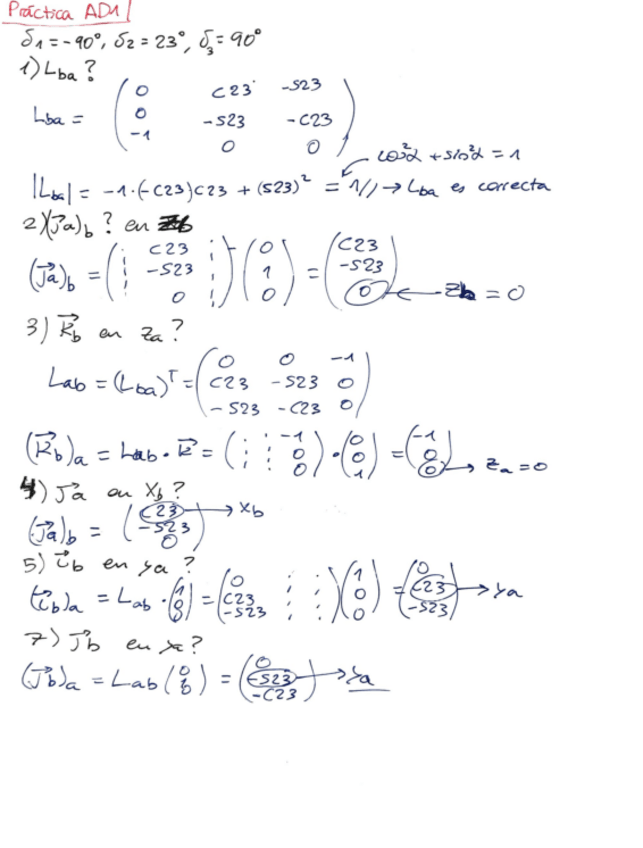 Práctica AD1
δ1 = -90°, δ2 = 23°, δ3 = 90°
1) Lba ?
Lba = ( 0 C23 -S23
0 -S23 -C23
-1 0 0 )
cos²α + sin²α = 1
|Lba| = -1·(-C23)C23 + (S23)² = 1// → Lba es correcta
2) (Ja)b ? en zb
(Ja)b = ( C23 -S23 0 ) ( 0 1 0 ) = ( C23 -S23 0 ) ← zb = 0
3) Kb en za ?
Lab = (Lba)ᵀ = ( 0 0 -1
C23 -S23 0
-S23 -C23 0 )
(Kb)a = Lab · K = ( -1 0 0 ) · ( 0 0 1 ) = ( -1 0 0 ) → za = 0
4) Ja en Xb ?
(Ja)b = ( C23 -S23 0 ) → Xb
5) ib en ya ?
(ib)a = Lab · ( 1 0 0 ) = ( 0 C23 -S23 ) ( 1 0 0 ) = ( 0 C23 -S23 ) → ya
7) Jb en ya ?
(Jb)a = Lab ( 0 1 0 ) = ( 0 -S23 -C23 ) → ya